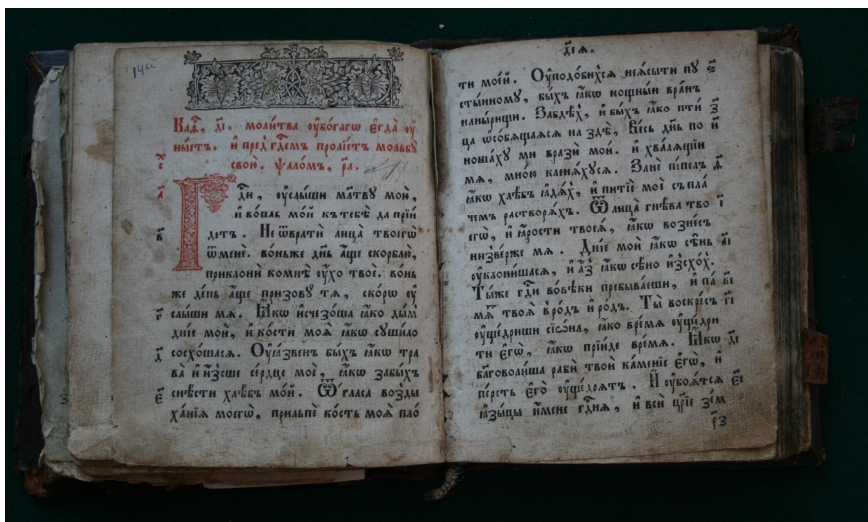 Каѳ҃, д҃і. моли́тва ѹ҆бо́гагѡ є҆гда̀ ѹ҆
ны́етъ. и҆ пред̾ гд҇емъ проліе́тъ мольбу̀
свою̀. ѱало́мъ, р҃а.
Гд҇и, ѹ҆слы́ши мл҃тву мою̀,
и҆ во́пль мо́й къ тебѣ̀ да прїи
детъ. Не ѿвратѝ лица̀ твоегѡ̀
ѿменѐ. во́ньже дн҃ь а҆́ще скорблю̀,
приклонѝ комнѣ̀ ѹ҆́хо твоѐ. во́нь
же де́нь а҆́ще призову̀ тѧ, ско́рѡ ѹ҆
слы́ши мѧ̀. Ꙗ҆́кѡ и҆счезо́ша ꙗ҆́ко ды́м
дні́е мои̑, и҆ ко́сти моѧ̑ ꙗ҆́кѡ суши́ло
сосхо́шасѧ. Оу҆ѧ́звенъ бы́хъ ꙗ҆́кѡ тра
ва̀ и҆ и҆́зсше се́рдце моѐ, ꙗ҆́кѡ забы́хъ
снѣ́сти хлѣ́бъ мо́й. Ѿ гла́са возды
ха́нїѧ моегѡ̀, прильпѐ ко́сть моѧ̀ пло́
д҃і ѧ.
ти мое́й. Оу҆подо́бихсѧ неѧ́сыти пу
сты́нному, бы́хъ ꙗ҆́кѡ нощны́и вра́нъ
наны́рищи. Забдѣ́х, и҆ бы́хъ ꙗ҆́ко пти
ца ѡ҆собѧ́щаѧсѧ на здѣ̀. Ве́сь дн҃ь по
ноша́ху ми вразѝ мои̑. и҆ хва́лѧщїи
мѧ̀, мно́ю кленѧ́хусѧ. Занѐ пе́пелъ
ꙗ҆́кѡ хлѣ́бъ ꙗ҆дѧ́х, и҆ питїѐ моѐ съ пла́
чемъ растворѧ́хъ. Ѿ лица̀ гнѣ́ва тво
егѡ̀, и҆ ꙗ҆́рости твоеѧ̀, ꙗ҆́кѡ возне́съ
низве́рже мѧ. Дні́е мои̑ ꙗ҆́кѡ сѣ́нь
ѹ҆клони́шасѧ, и҆ а҆́з ꙗ҆́кѡ сѣ́но и҆зсхо́х.
Ты́же гд҇и во́вѣки пребыва́еши, и҆ па́
мѧт твоѧ̀ вро́дъ и҆ ро́дъ. Ты̀ воскре́съ
ѹ҆ще́дриши сїѡ́на, ꙗ҆́ко вре́мѧ ѹ҆ще́дри
ти є҆гѡ̀, ꙗ҆́кѡ прїи́де времѧ. Ꙗ҆́кѡ
бл҃говоли́ша рабѝ твои̑ ка́менїе є҆гѡ̀, и҆
пе́рсть є҆гѡ̀ ѹ҆ще́дрѧтъ. И҆ ѹ҆боѧ́тсѧ
ꙗ҆зы́цы и҆́мене гд҇нѧ, и҆ всѝ цр҃їе зе́м
р҃з